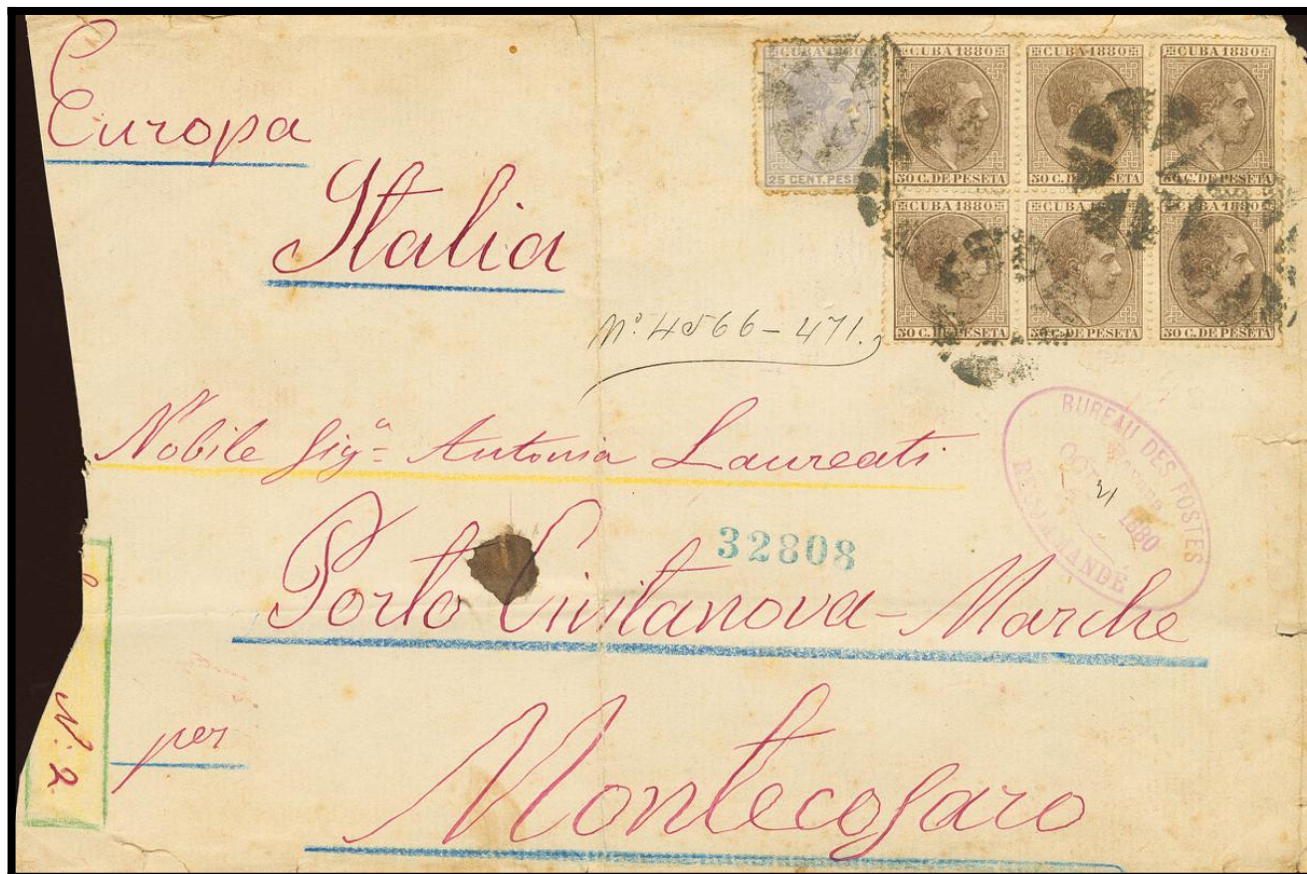 Europa
Italia
CUBA 1880
25 CENT. PESETA
CUBA 1880
CUBA 1880
CUBA 1880
50 C. DE PESETA
50 C. DE PESETA
50 C. DE PESETA
CUBA 1880
CUBA 1880
CUBA 1880
50 C. DE PESETA
50 C. DE PESETA
50 C. DE PESETA
Nº 4566-471.
Nobile Sigª Antonia Laureati
BUREAU DES POSTES
OCT 21 1880
32808
Porto Civitanova - Marche
N. 2
per
Montecosaro